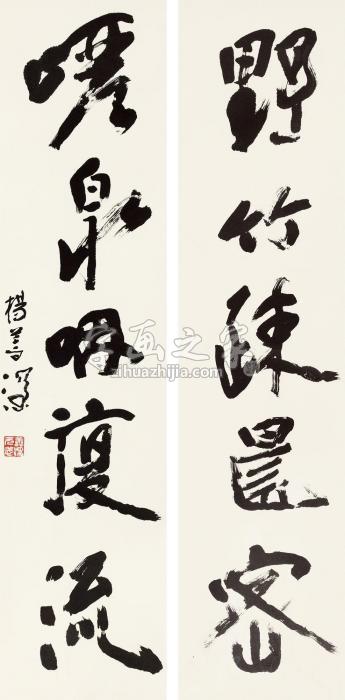 野竹疎還密
巖泉咽復流
楊善深
字画之家
zihuazhijia.com